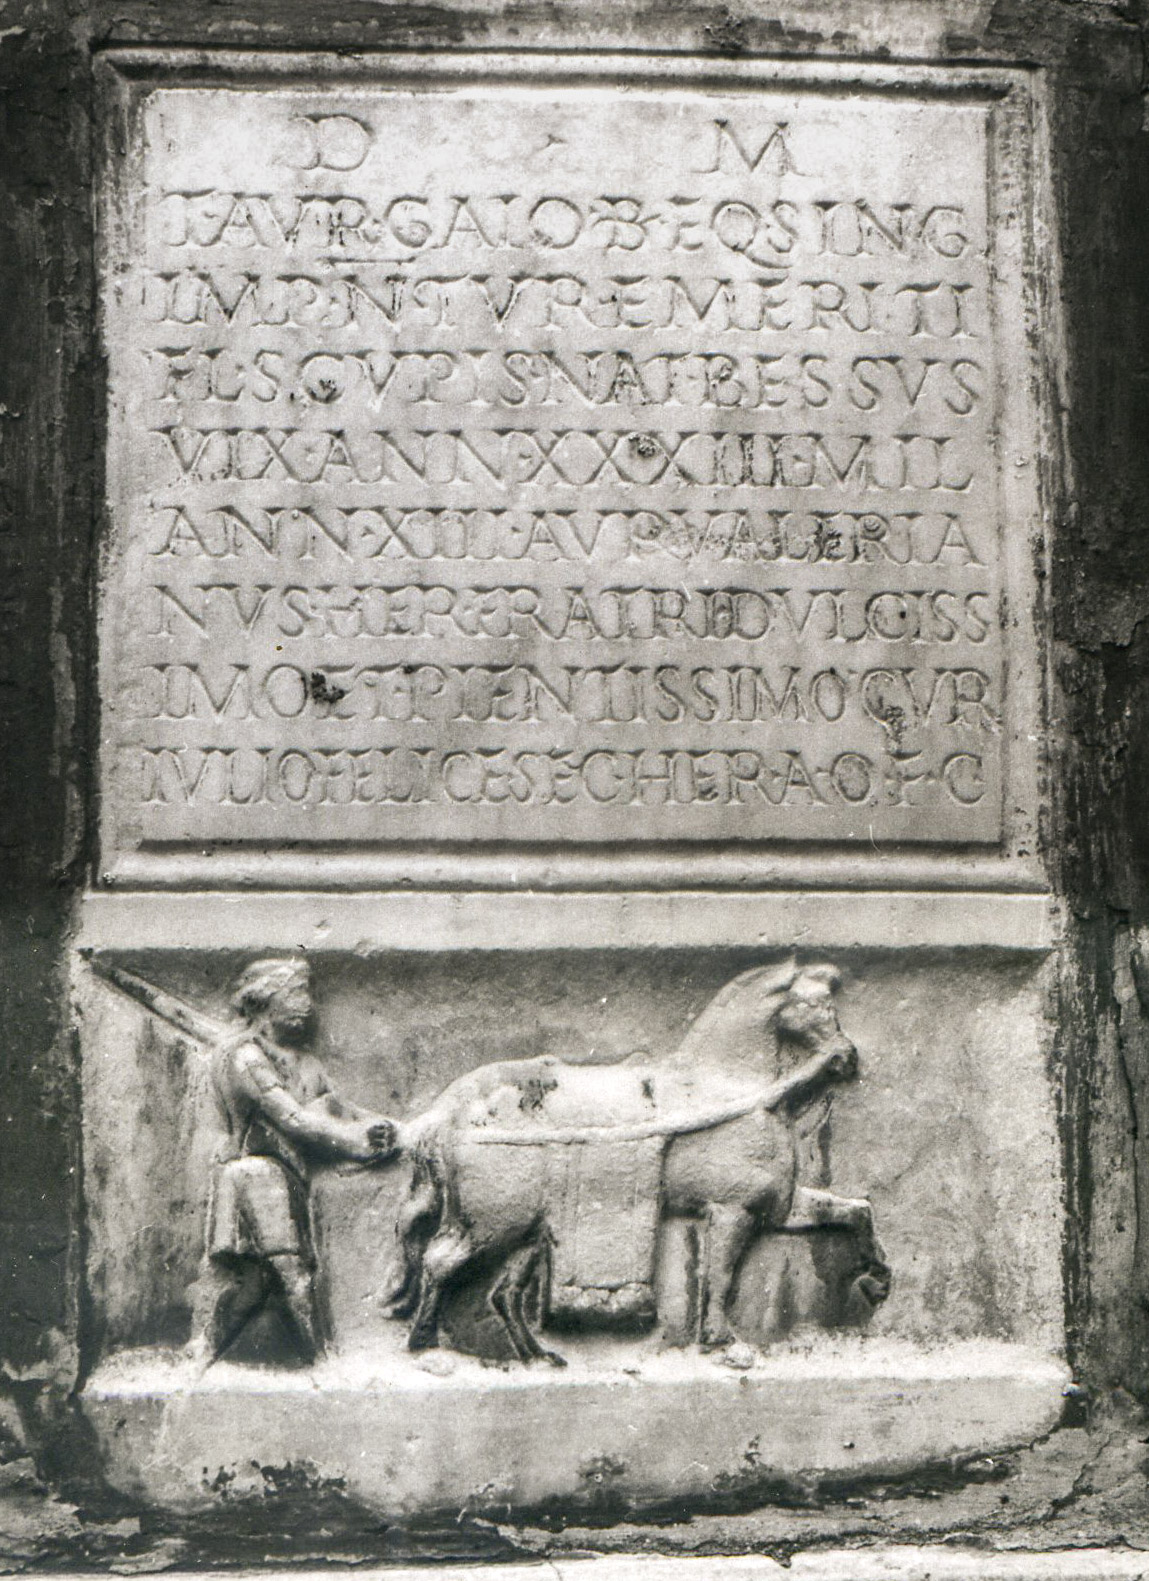 D M
T AVR GAIO B EQ SING
IMP N TVRE EMERITI
FL SCVPIS NAT BESSVS
VIX ANN XXX XIII MIL
ANN XIII AVR VALERIA
NVS HERER ATIR DVLCISS
IMO ET PIENTISSIMO CVR
IVLIO FELICE SECH ERAO F C